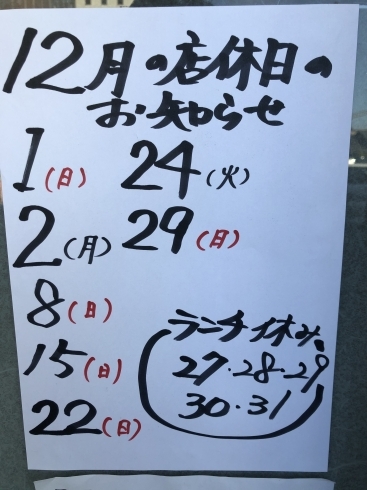 12月の店休日の
お知らせ
1(日)
24(火)
2(月)
29(日)
8(日)
15(日)
22(日)
ランチ休み
27・28・29
30・31